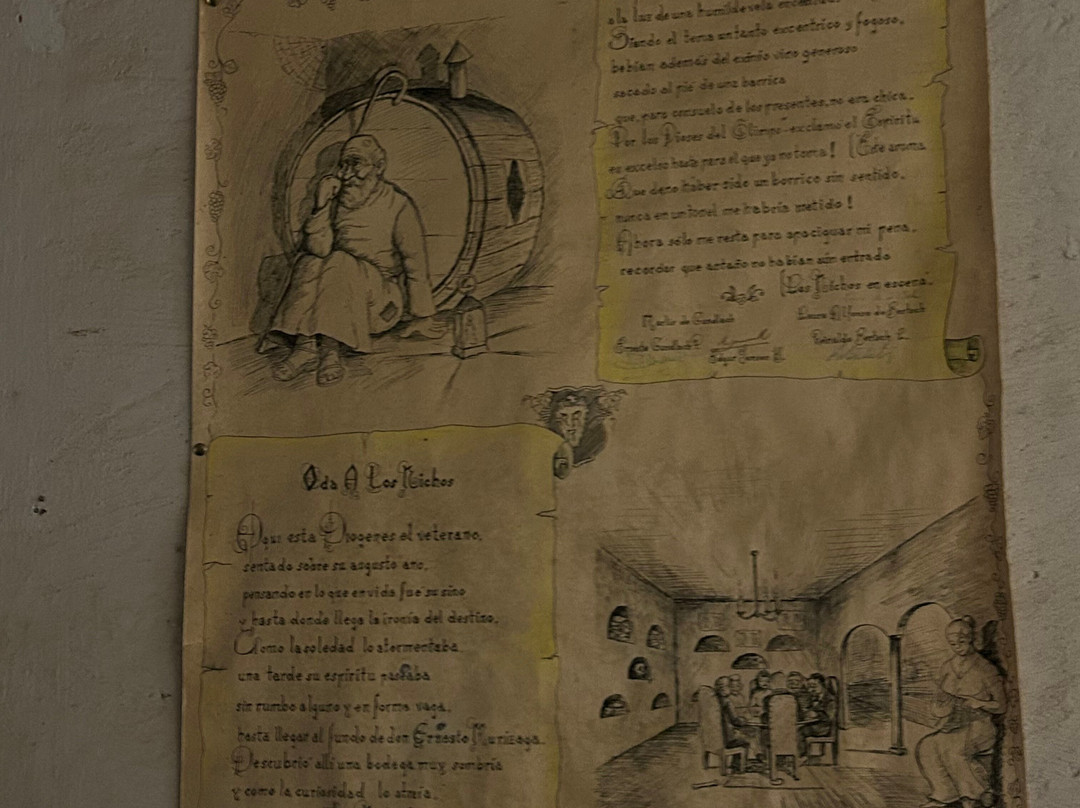 Oda A Los Nichos
Aqui esta Diogenes el veterano,
sentado sobre su angusto ano,
pensando en lo que en vida fue su sino
y hasta donde llega la ironia del destino.
Como la soledad lo atormentaba
una tarde su espiritu paseaba
sin rumbo alguno y en forma vaga,
hasta llegar al fundo de don Ernesto Murizaga.
Descubrio alli una bodega muy sombria
y como la curiosidad lo atraia.
a la luz de una humilde vela
Siendo el tema un tanto excentrico y fogoso,
bebian además del eximio vino generoso
sacado al pie de una barrica
que, para consuelo de los presentes, no era chica.
Por los Dioses del Olimpo exclamó el Espiritu
es excelso hasta para el que ya no toma! Este aroma
Que deno haber sido un borrico sin sentido,
nunca en un tonel me habría metido!
Ahora sólo me resta para apaciguar mi pena,
recordar que antaño no habían aún entrado
Los Nichos en escena.
de Gundlach
Laura Alfonso de
Ernesto Gundlach